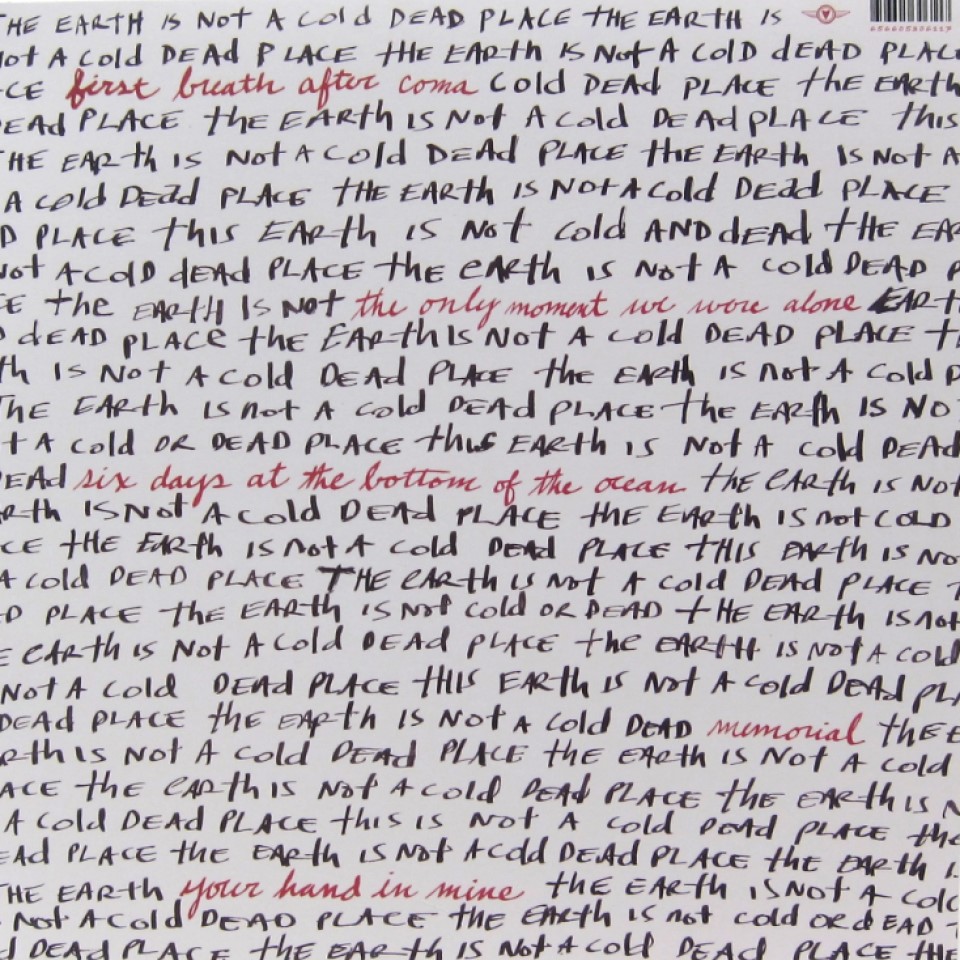 THE EARTH IS NOT A COld DEAD PLACE THE EARTH IS
Not A Cold DEAd PLACE tHE EARth IS Not A COlD dEAD PLACE
CE first breath after coma Cold DEAd PLACE the EARth
DEAd PLACE the EARth IS Not A Cold DEAd PLACE this
THE EARth IS Not A Cold DEAd PLACE the EARth IS Not A
A cold DEAd PLACE tHE EARth IS Not A Cold DEAd PLACE
D PLACE this EARth IS Not cold AND dEAd tHE EAR
Not A Cold dEAd PLACE the eARth IS Not A cold DEAD P
CE the EARTH IS NOT the only moment we were alone EARt
D dEAd PLACe the EARth IS Not A cold DEAD PLACE t
th IS Not A cold DEAd PLACE the EARth IS not A cold D
THE EARth IS not A cold DEAd PLACE the EARth IS NO
t A cold OR DEAD PLACE this EARth IS Not A cold DEAd
DEAd six days at the bottom of the ocean tHE EARth IS Not
ARth IS Not A cold DEAd PLACE tHE EARth IS not COLD
CE tHE EARth IS not A cold DEAd PLACE tHIS EARth IS No
A cold DEAD PLACE THE EARth IS not A cold DEAd PLACE
D PLACE the EARth IS Not cold OR DEAD tHE EARth IS not
E EARth IS Not A cold DEAd PLACE the EARtH IS not A cold
Not A Cold DEAd PLACe tHIS EARth IS Not A cold DEAd PLA
DEAd PLACE tHE EARth IS Not A cold DEAD memorial tHE E
ARth IS Not A cold DEAd PLACE tHE EARth IS Not A cold
ACE the EARth IS Not A cold DEAd PLACE tHE EARth IS N
A Cold DEAd PLACE this IS Not A cold DEAd PLACE the
EAd PLACE the EARth IS Not A cold DEAd PLACE the EARth I
THE EARth your hand in mine tHE EARth IS Not A cold
Not A Cold DEAD PLACE the EARth IS not cold OR dEAD
d DEAd PLACE the EARth IS Not A cold DEAd PLACE tHE